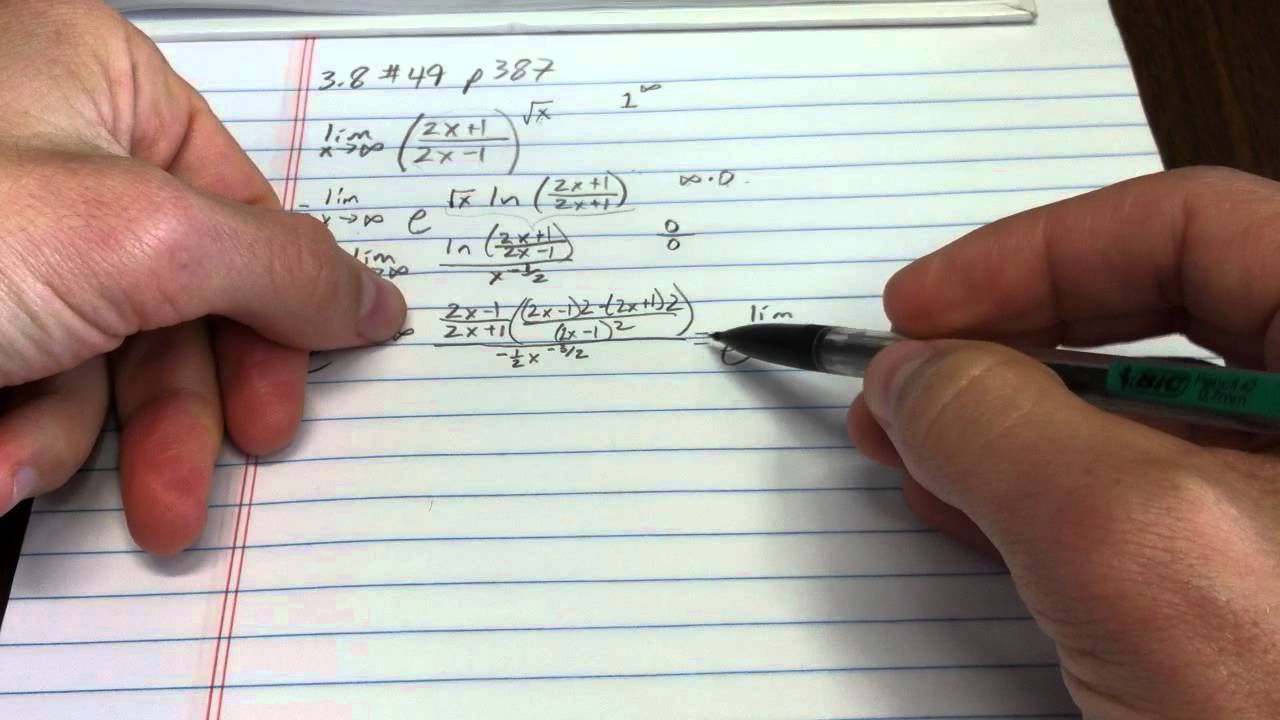 3.8 #49 p387
lim x→∞ ((2x+1)/(2x-1))^√x 1^∞
= lim x→∞ e^ √x ln ((2x+1)/(2x+1)) ∞·0.
lim →∞ ln ((2x+1)/(2x-1)) / x^-1/2 0/0
∞ (2x-1)/(2x+1) (((2x-1)2-(2x+1)2)/(2x-1)^2) / -1/2 x^-3/2 = e^ lim
BIC
0.7mm